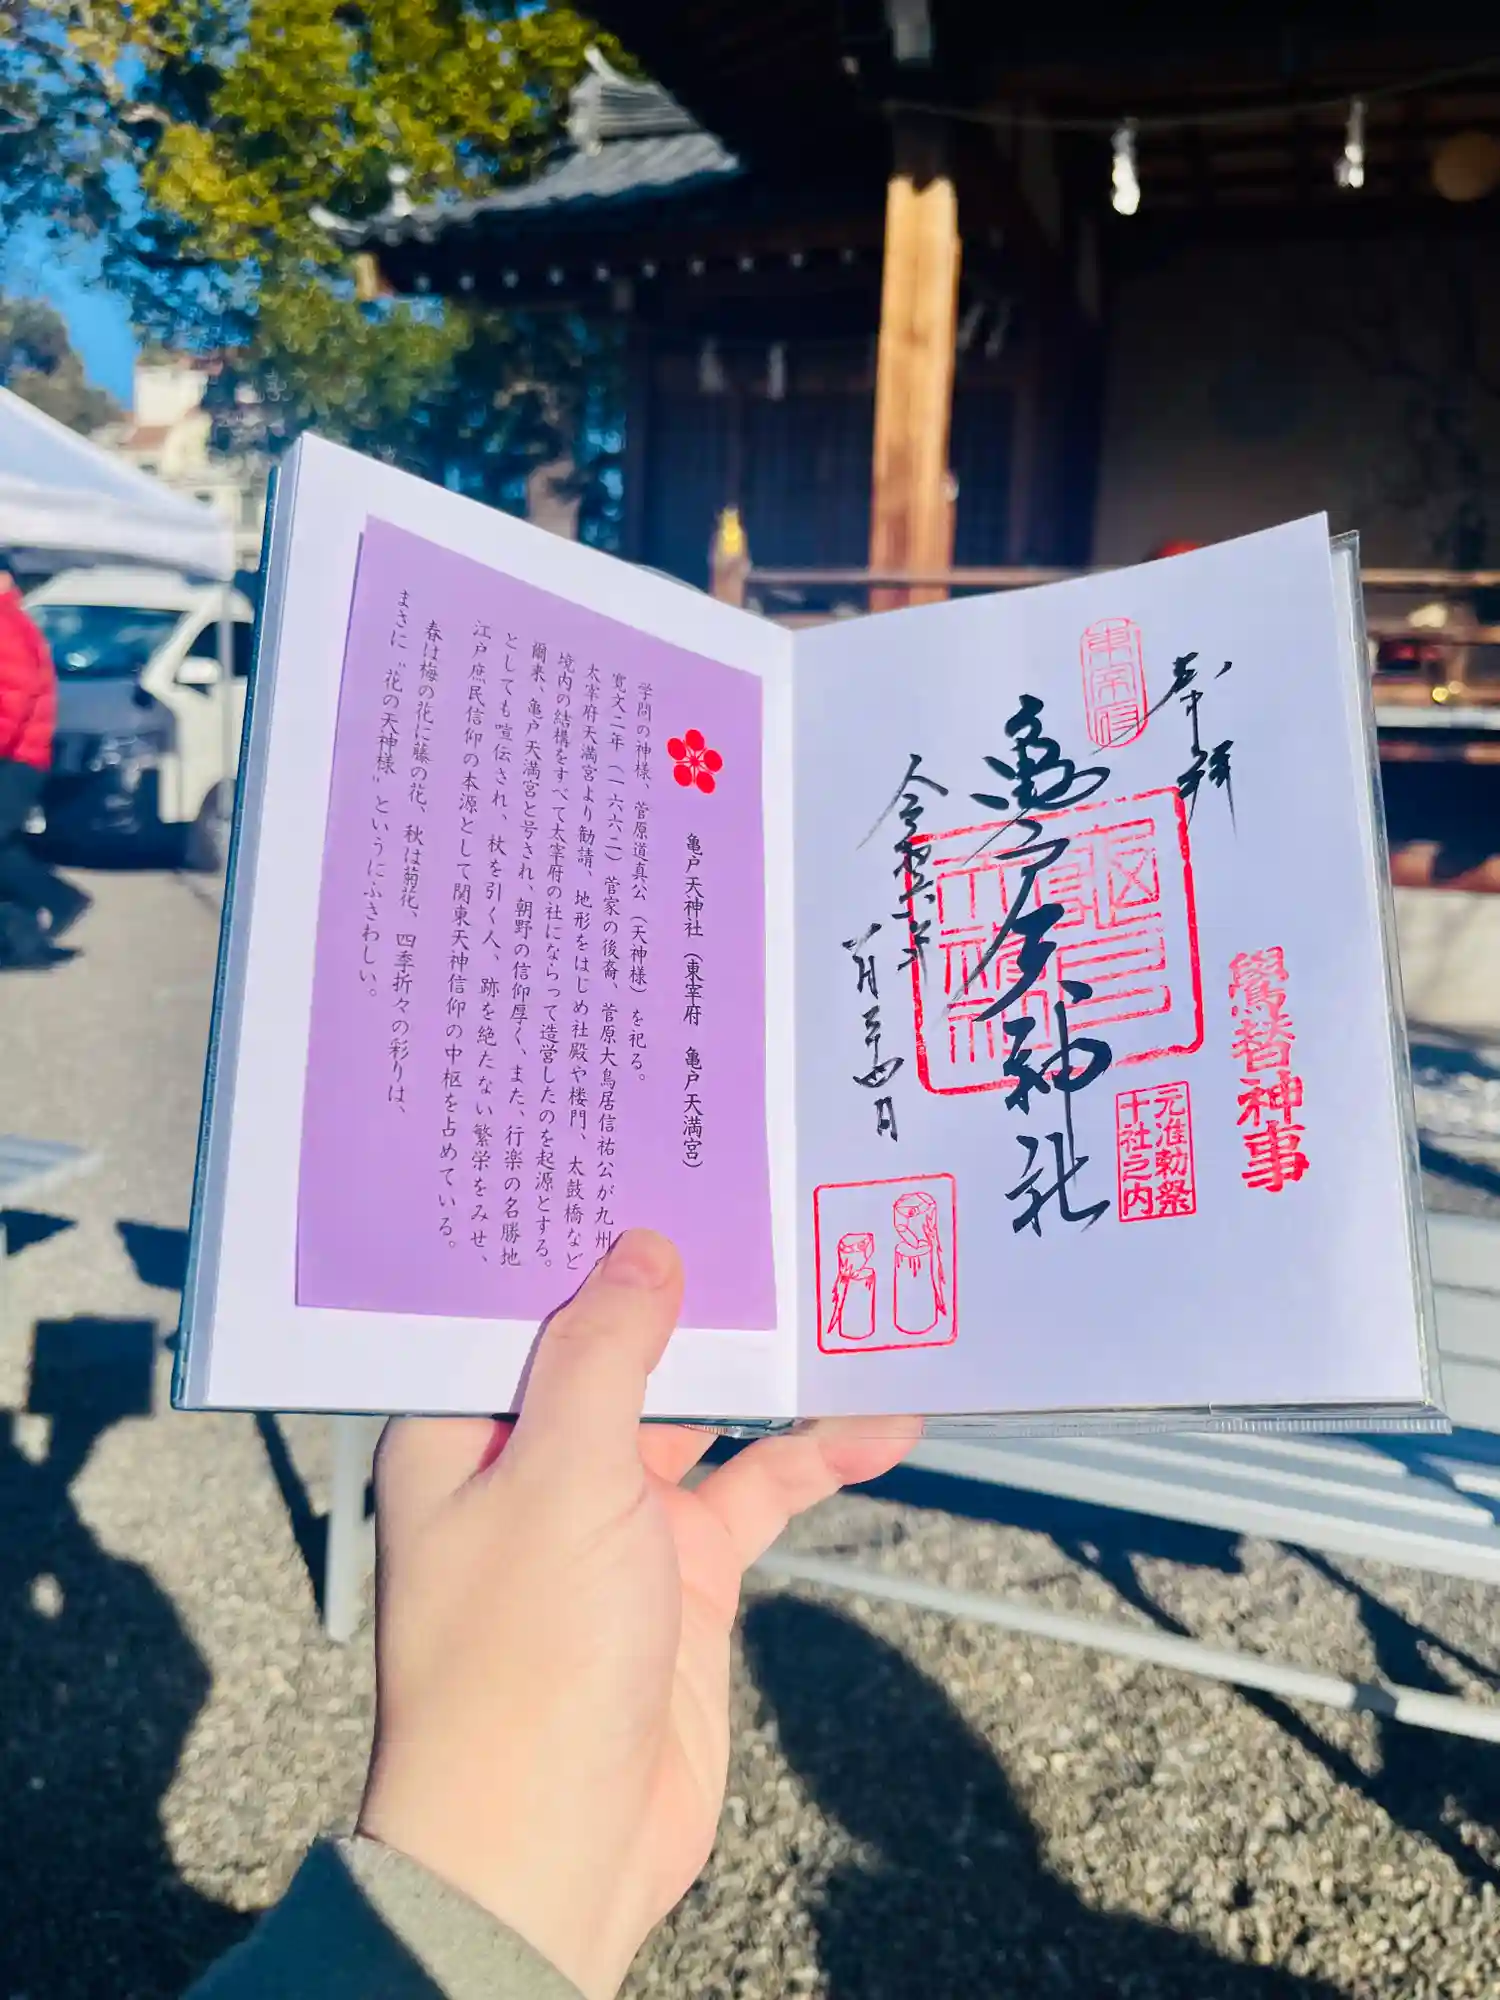 奉拝
東宰府
亀戸天神社
亀戸天神社
令和六年
一月二十四日
鷽替神事
元准勅祭
十社之内
亀戸天神社（東宰府　亀戸天満宮）
学問の神様、菅原道真公（天神様）を祀る。
寛文二年（一六六二）菅家の後裔、菅原大鳥居信祐公が九州
太宰府天満宮より勧請、地形をはじめ社殿や楼門、太鼓橋など
境内の結構をすべて太宰府の社にならって造営したのを起源とする。
爾来、亀戸天満宮と号され、朝野の信仰厚く、また、行楽の名勝地
としても喧伝され、杖を引く人、跡を絶たない繁栄をみせ、
江戸庶民信仰の本源として関東天神信仰の中枢を占めている。
春は梅の花に藤の花、秋は菊花、四季折々の彩りは、
まさに〝花の天神様〟というにふさわしい。